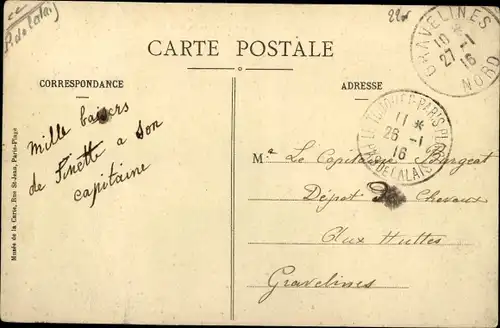 P. de Calais
CARTE POSTALE
CORRESPONDANCE
ADRESSE
GRAVELINES
19 *
27 -1
16
NORD
LE TOUQUET-PARIS PLAGE
11 *
26 -1
16
PAS DE CALAIS
Mille baisers
de Finette a son
capitaine
Le Capitaine
Dépot de Chevaux
Aux Huttes
Gravelines
Musée de la Carte, Rue St-Jean, Paris-Plage